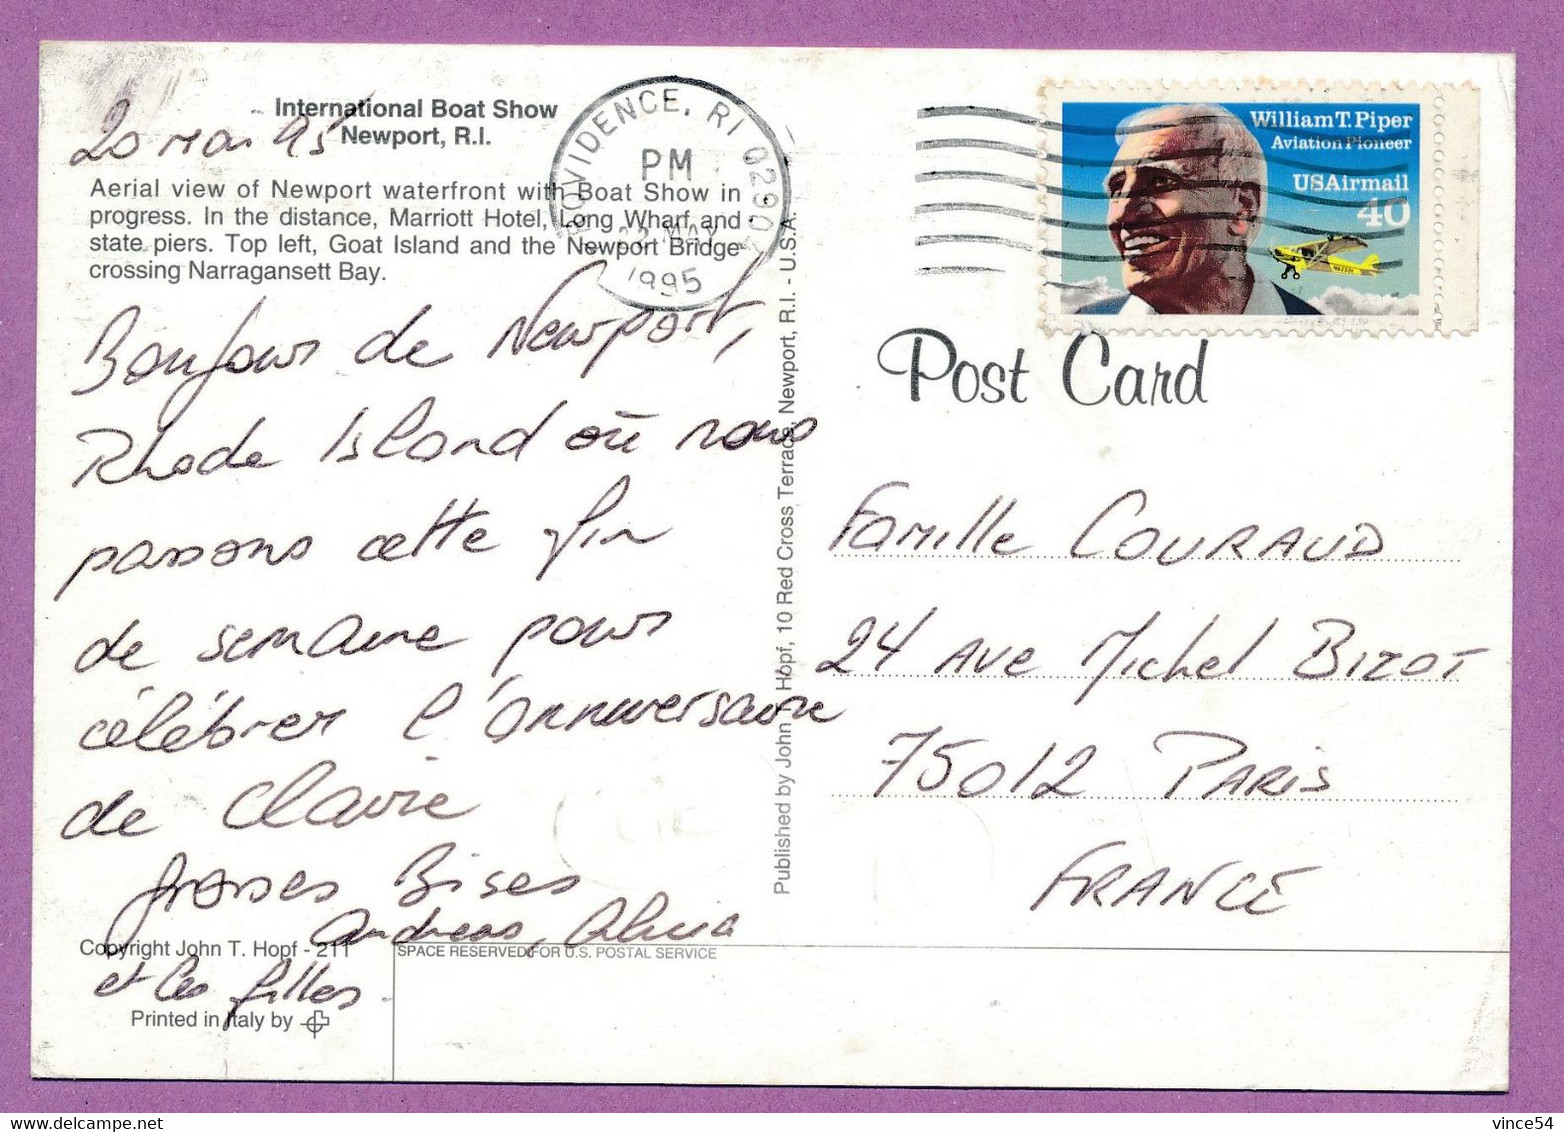 International Boat Show
Newport, R.I.
20 mai 95
Aerial view of Newport waterfront with Boat Show in
progress. In the distance, Marriott Hotel, Long Wharf and
state piers. Top left, Goat Island and the Newport Bridge
crossing Narragansett Bay.
Bonjour de Newport,
Rhode Island où nous
passons cette fin
de semaine pour
célébrer l'anniversaire
de Claire
Grosses Bises
Andreas,
et les filles.
Copyright John T. Hopf - 211
Printed in Italy by
SPACE RESERVED FOR U.S. POSTAL SERVICE
Published by John T. Hopf, 10 Red Cross Terrace, Newport, R.I. - U.S.A.
PROVIDENCE, RI 02904
PM
22 MAY
1995
William T. Piper
Aviation Pioneer
USAirmail
40
Post Card
Famille COURAUD
24 AVE Michel BIZOT
75012 PARIS
FRANCE
vince54